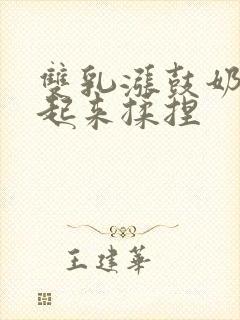 雙乳漲鼓奶
起来揉捏
王建華